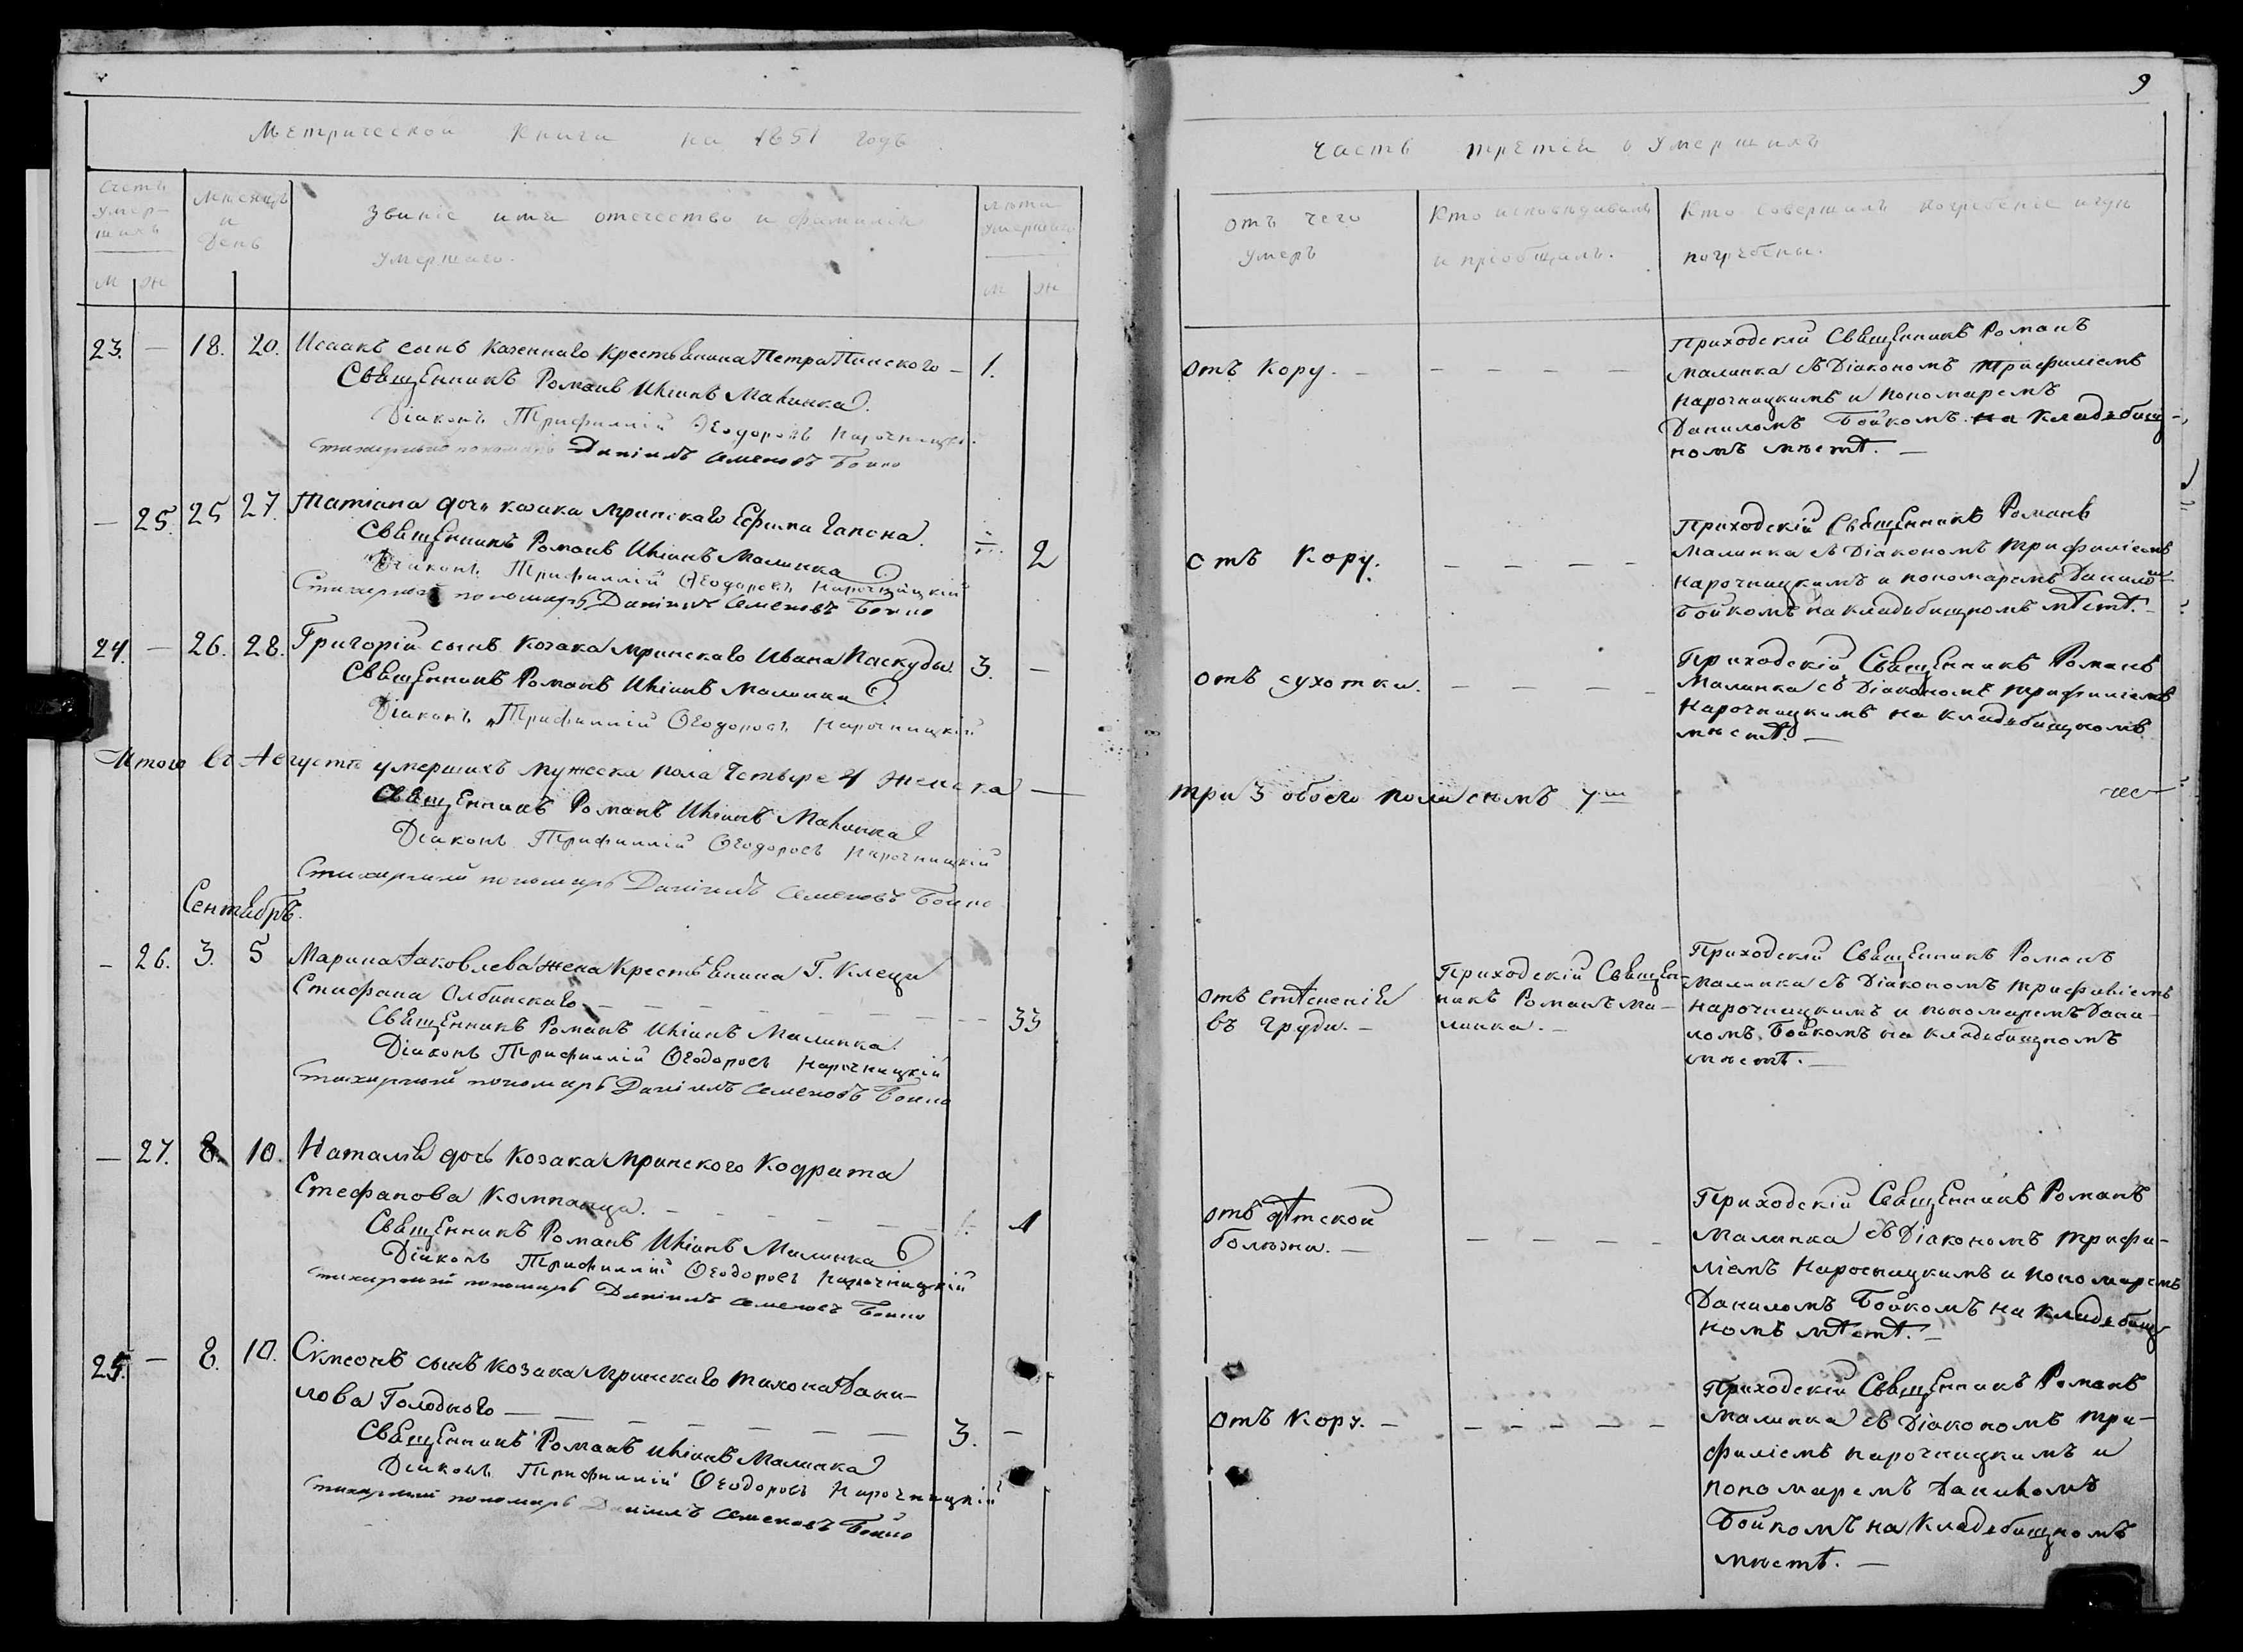 9
Метрической Книги на 1851 годъ
Часть третія о Умершихъ
Счетъ умер-шихъ
Мѣсяцъ и День
Званіе имя отечество и фамилія
умершаго.
лѣта умершаго
М Ж
М Ж
отъ чего
умеръ
Кто исповѣдывалъ
и пріобщилъ.
Кто совершилъ погребеніе и гдѣ
погребены.
23. — 18. 20. Исаакъ сынъ казеннаго Крестьянина Петра Пинского — 1.
Священникъ Романъ Малинка
Діаконъ Трифиллій Ѳеодоровъ Нарочницкій
Стихарный пономарь Даніилъ Семеновъ Бойко
отъ Кору. — — — — —
Приходскій Священникъ Романъ
Малинка съ Діакономъ Трифиліемъ
Нарочницкимъ и пономаремъ
Даниломъ Бойкомъ на кладбищ-
номъ мѣстѣ. —
— 25. 25 27. Татіана дочь козака Мринскаго Ефима Гапона. 2
Священникъ Романъ Малинка
Діаконъ Трифиллій Ѳеодоровъ Нарочницкій
Стихарный пономарь Даніилъ Семеновъ Бойко
отъ Кору. — — — —
Приходскій Священникъ Романъ
Малинка съ Діакономъ Трифиліемъ
Нарочницкимъ и пономаремъ Данилом
Бойкомъ на кладбищномъ мѣстѣ. —
24. — 26. 28. Григорій сынъ козака Мринскаго Ивана Паскуды. 3. —
Священникъ Романъ Малинка
Діаконъ Трифиллій Ѳеодоровъ Нарочницкій
отъ сухотки. — — — —
Приходскій Священникъ Романъ
Малинка съ Діакономъ Трифиліемъ
Нарочницкимъ на кладбищномъ
мѣстѣ. —
Итого въ Августѣ умершихъ мужеска пола Четыре 4 женска —
три 3 обоего пола семъ 7
Священникъ Романъ Малинка
Діаконъ Трифиллій Ѳеодоровъ Нарочницкій
Стихарный пономарь Даніилъ Семеновъ Бойко
Сентябрь.
— 26. 3. 5 Марина Яковлева жена Крестьянина Г. Клеци
Стефана Олбинскаго — — — — — — 33
Священникъ Романъ Малинка
Діаконъ Трифиллій Ѳеодоровъ Нарочницкій
Стихарный пономарь Даніилъ Семеновъ Бойко
отъ стѣсненія
въ груди. —
Приходскій Священ-
никъ Романъ Ма-
линка. —
Приходскій Священникъ Романъ
Малинка съ Діакономъ Трифиліемъ
Нарочницкимъ и пономаремъ Дани-
ломъ Бойкомъ на кладбищномъ
мѣстѣ. —
— 27. 8. 10. Наталія дочь Козака Мринского Кодрата
Стефанова Компанца. — — — — — 1
Священникъ Романъ Малинка
Діаконъ Трифиллій Ѳеодоровъ Нарочницкій
Стихарный пономарь Даніилъ Семеновъ Бойко
отъ дѣтской
болѣзни. — — — — —
Приходскій Священникъ Романъ
Малинка съ Діакономъ Трифи-
ліемъ Нарочницкимъ и пономаремъ
Даниломъ Бойкомъ на кладбищ
номъ мѣстѣ. —
25. — 8. 10. Сімеонъ сынъ козака Мринскаго Тихона Дани-
лова Голодного — — — — — — 3. —
Священникъ Романъ Малинка
Діаконъ Трифиллій Ѳеодоровъ Нарочницкій
Стихарный пономарь Даніилъ Семеновъ Бойко
отъ Кору. — — — — — —
Приходскій Священникъ Романъ
Малинка съ Діакономъ Три-
филіемъ Нарочницкимъ и
пономаремъ Даниломъ
Бойкомъ на кладбищномъ
мѣстѣ. —